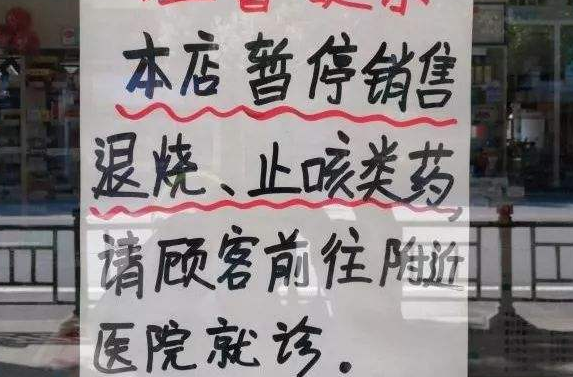 本店暂停销售
退烧、止咳类药,
请顾客前往附近
医院就诊.